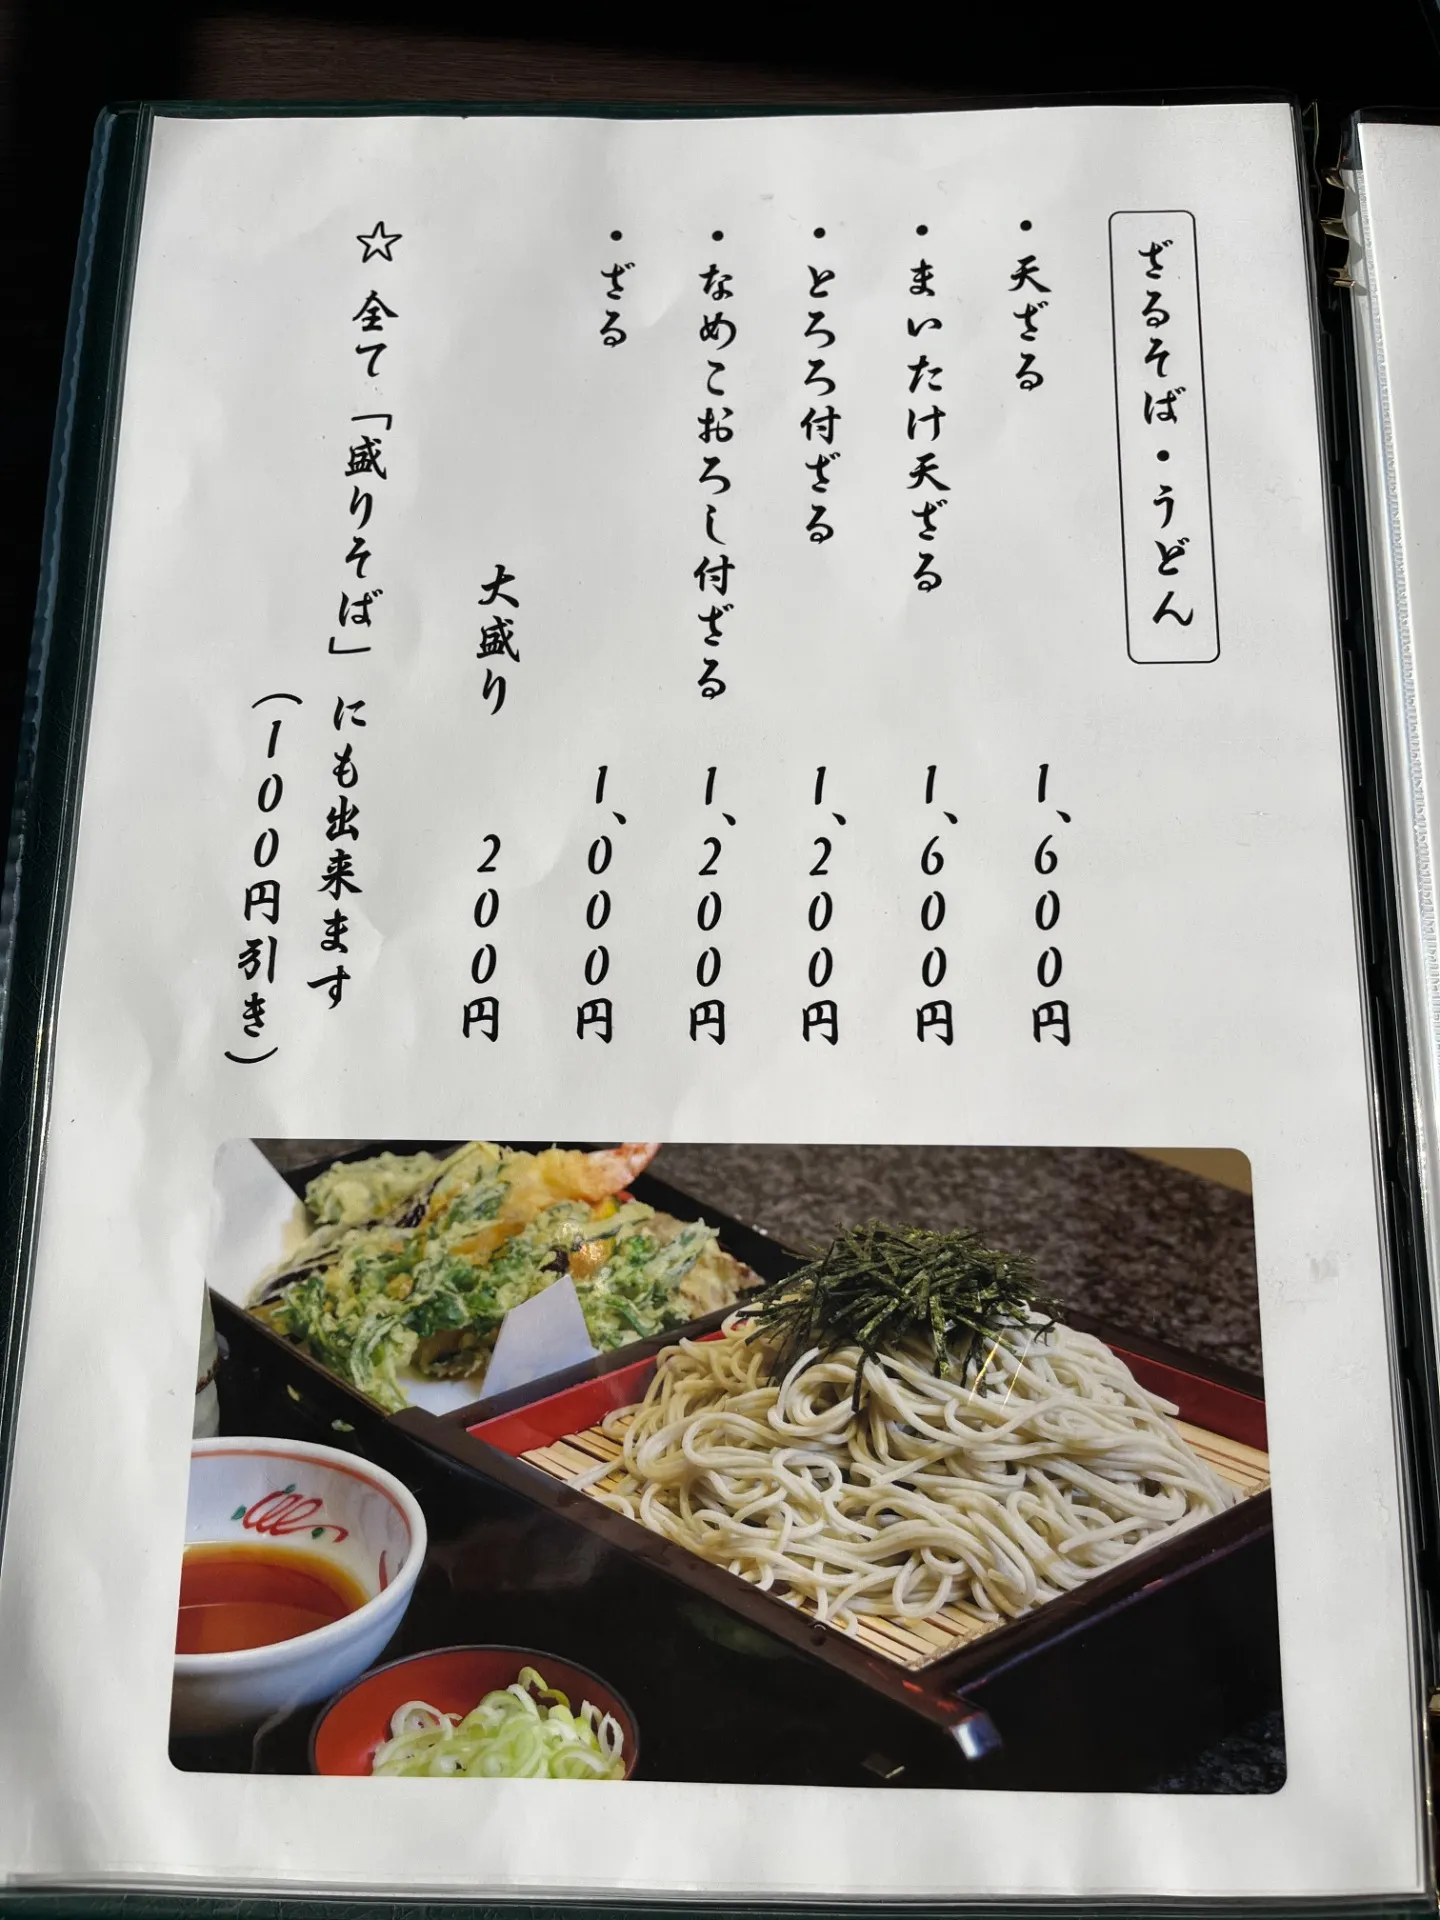 ざるそば・うどん
・天ざる 1、600円
・まいたけ天ざる 1、600円
・とろろ付ざる 1、200円
・なめこおろし付ざる 1、200円
・ざる 1、000円
大盛り 200円
☆ 全て「盛りそば」にも出来ます
(100円引き)